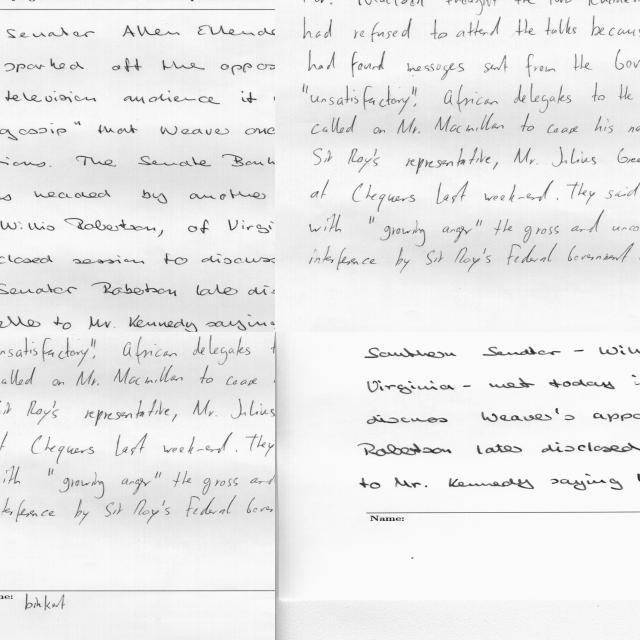 Senator Allen Ellende
sparked off the oppos
television audience it
gossip" that Weaver onc
ions. The Senate Bank
s headed by another
Willis Robertson, of Virgi
closed session to discuss
Senator Robertson later dis
to Mr. Kennedy saying
had refused to attend the talks becaus
had found messages sent from the Gov
"unsatisfactory". African delegates to the
called on Mr. Macmillan to cease his
Sir Roy's representative, Mr. Julius Gree
at Chequers last week-end. They said
with "growing anger" the gross and unco
interference by Sir Roy's Federal Government
nsatisfactory". African delegates t
alled on Mr. Macmillan to cease
ir Roy's representative, Mr. Julius
t Chequers last week-end. They
ith "growing anger" the gross and
terference by Sir Roy's Federal Gover
me: binkut
Southern Senator - Will
Virginia - met today i
discuss Weaver's appo
Robertson later disclosed
to Mr. Kennedy saying
Name: